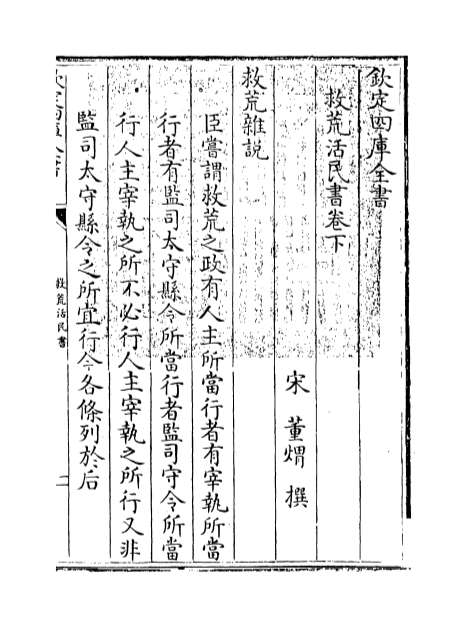 欽定四庫全書
救荒活民書卷下
宋 董煟 撰
救荒雜說
臣嘗謂救荒之政有人主所當行者有宰執所當
行者有監司太守縣令所當行者監司守令所當
行人主宰執之所不必行人主宰執之所行又非
監司太守縣令之所宜行今各條列於后
救荒活民書